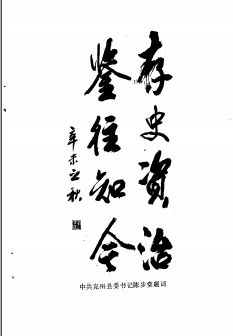 存史資治
鉴往知今
辛未之秋
中共兖州县委书记陈步堂题词